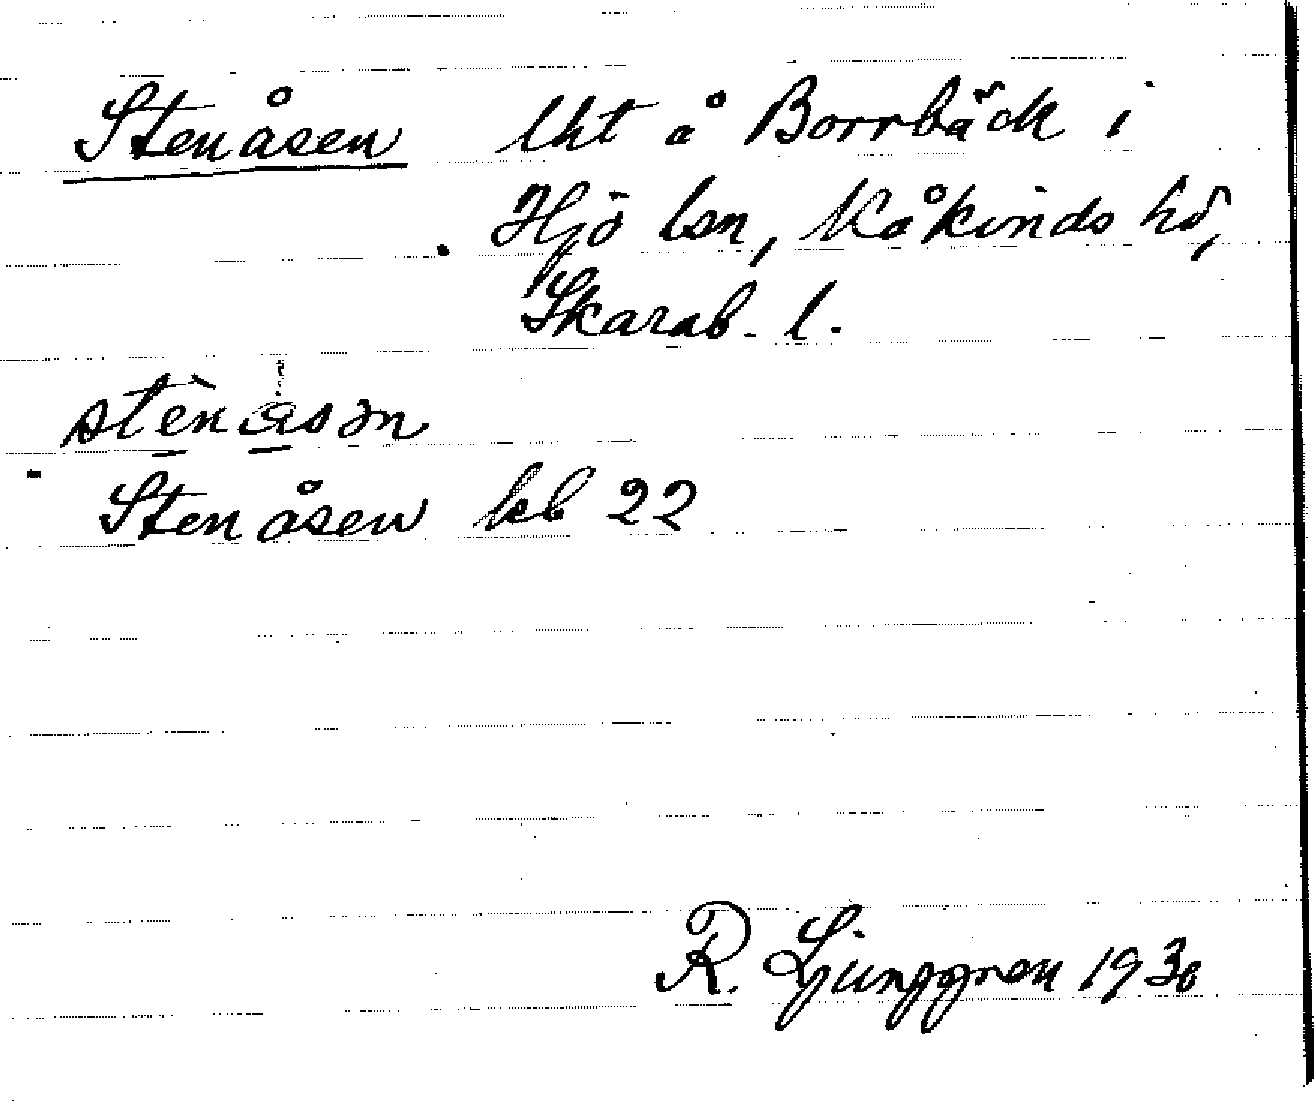 Stenåsen lht å Borrbäck i
Hjo lsn, Kåkinds hd,
Skarab. l.
stènåsən
Stenåsen kb 22
R. Ljunggren 1930